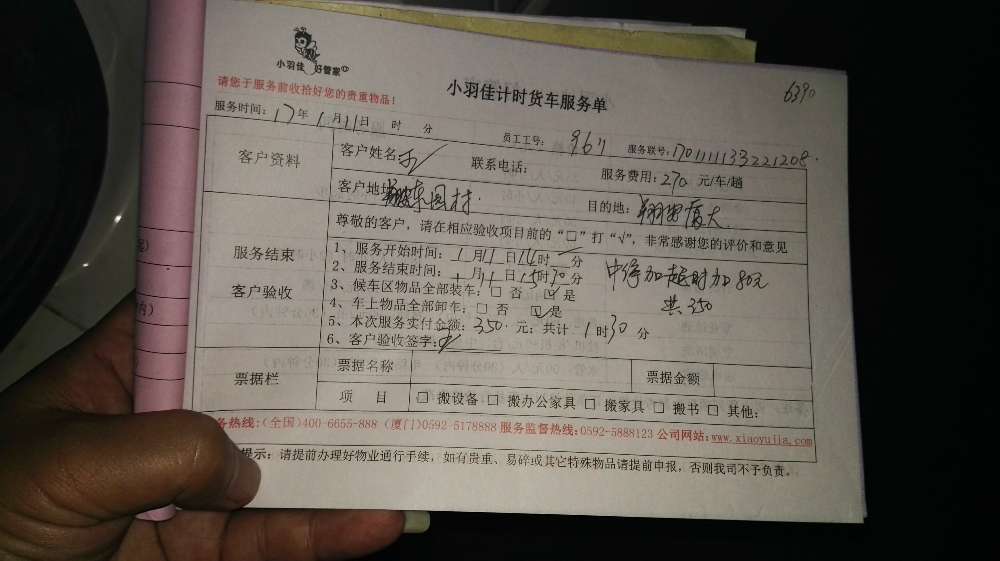 小羽佳 好管家
请您于服务前收拾好您的贵重物品！
小羽佳计时货车服务单
6390
服务时间：17年 1月11日 时 分
员工工号：
服务联号：170111133221208.
客户资料
客户姓名：
联系电话：
服务费用：270 元/车/趟
客户地址
东园村.
目的地：翔安厦大
尊敬的客户，请在相应验收项目前的“□”打“√”，非常感谢您的评价和意见
服务结束
客户验收
1、服务开始时间：1月11日14时 分
2、服务结束时间：1月11日15时30分
3、候车区物品全部装车：□ 否 ☑是
4、车上物品全部卸车：□ 否 ☑是
5、本次服务实付金额：350.元；共计：1时30分
6、客户验收签字：
中停加超时加80元
共350
票据栏
票据名称
票据金额
项 目
□ 搬设备 □ 搬办公家具 □ 搬家具 □ 搬书 □ 其他：
务热线：(全国)400-6655-888 (厦门)0592-5178888 服务监督热线：0592-5888123 公司网站：www.xiaoyujia.com
提示：请提前办理好物业通行手续，如有贵重、易碎或其它特殊物品请提前申报，否则我司不予负责。